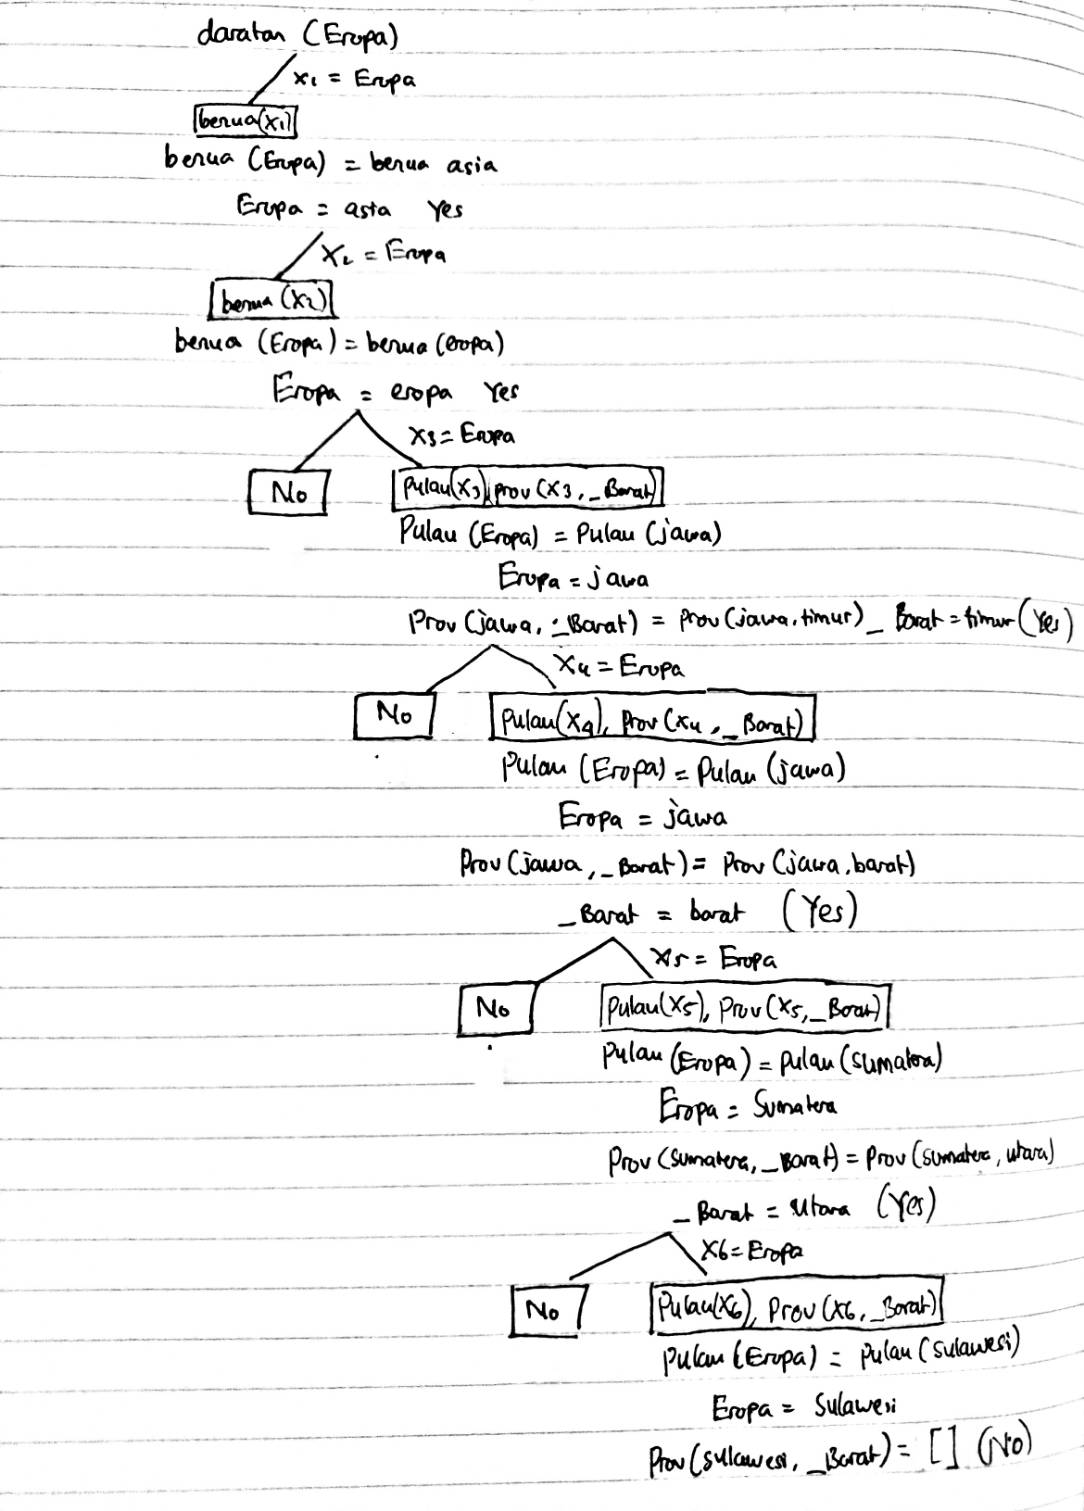 daratan (Eropa)
x1 = Eropa
benua(x1)
benua (Eropa) = benua asia
Eropa = asia Yes
x2 = Eropa
benua (x2)
benua (Eropa) = benua (eropa)
Eropa = eropa Yes
x3 = Eropa
No
Pulau(x3), prov (x3, _Barat)
Pulau (Eropa) = Pulau (jawa)
Eropa = jawa
Prov (jawa, _Barat) = prov (jawa, timur) _ Barat = timur (Yes)
x4 = Eropa
No
Pulau(x4), Prov (x4, _Barat)
Pulau (Eropa) = Pulau (jawa)
Eropa = jawa
Prov (jawa, _Barat) = Prov (jawa, barat)
_Barat = barat (Yes)
x5 = Eropa
No
Pulau(x5), Prov (x5, _Barat)
Pulau (Eropa) = pulau (sumatera)
Eropa = Sumatera
Prov (sumatera, _Barat) = Prov (sumatera, utara)
_ Barat = utara (Yes)
x6 = Eropa
No
Pulau(x6), Prov (x6, _Barat)
Pulau (Eropa) = Pulau (sulawesi)
Eropa = Sulawesi
Prov (sulawesi, _Barat) = [] (No)